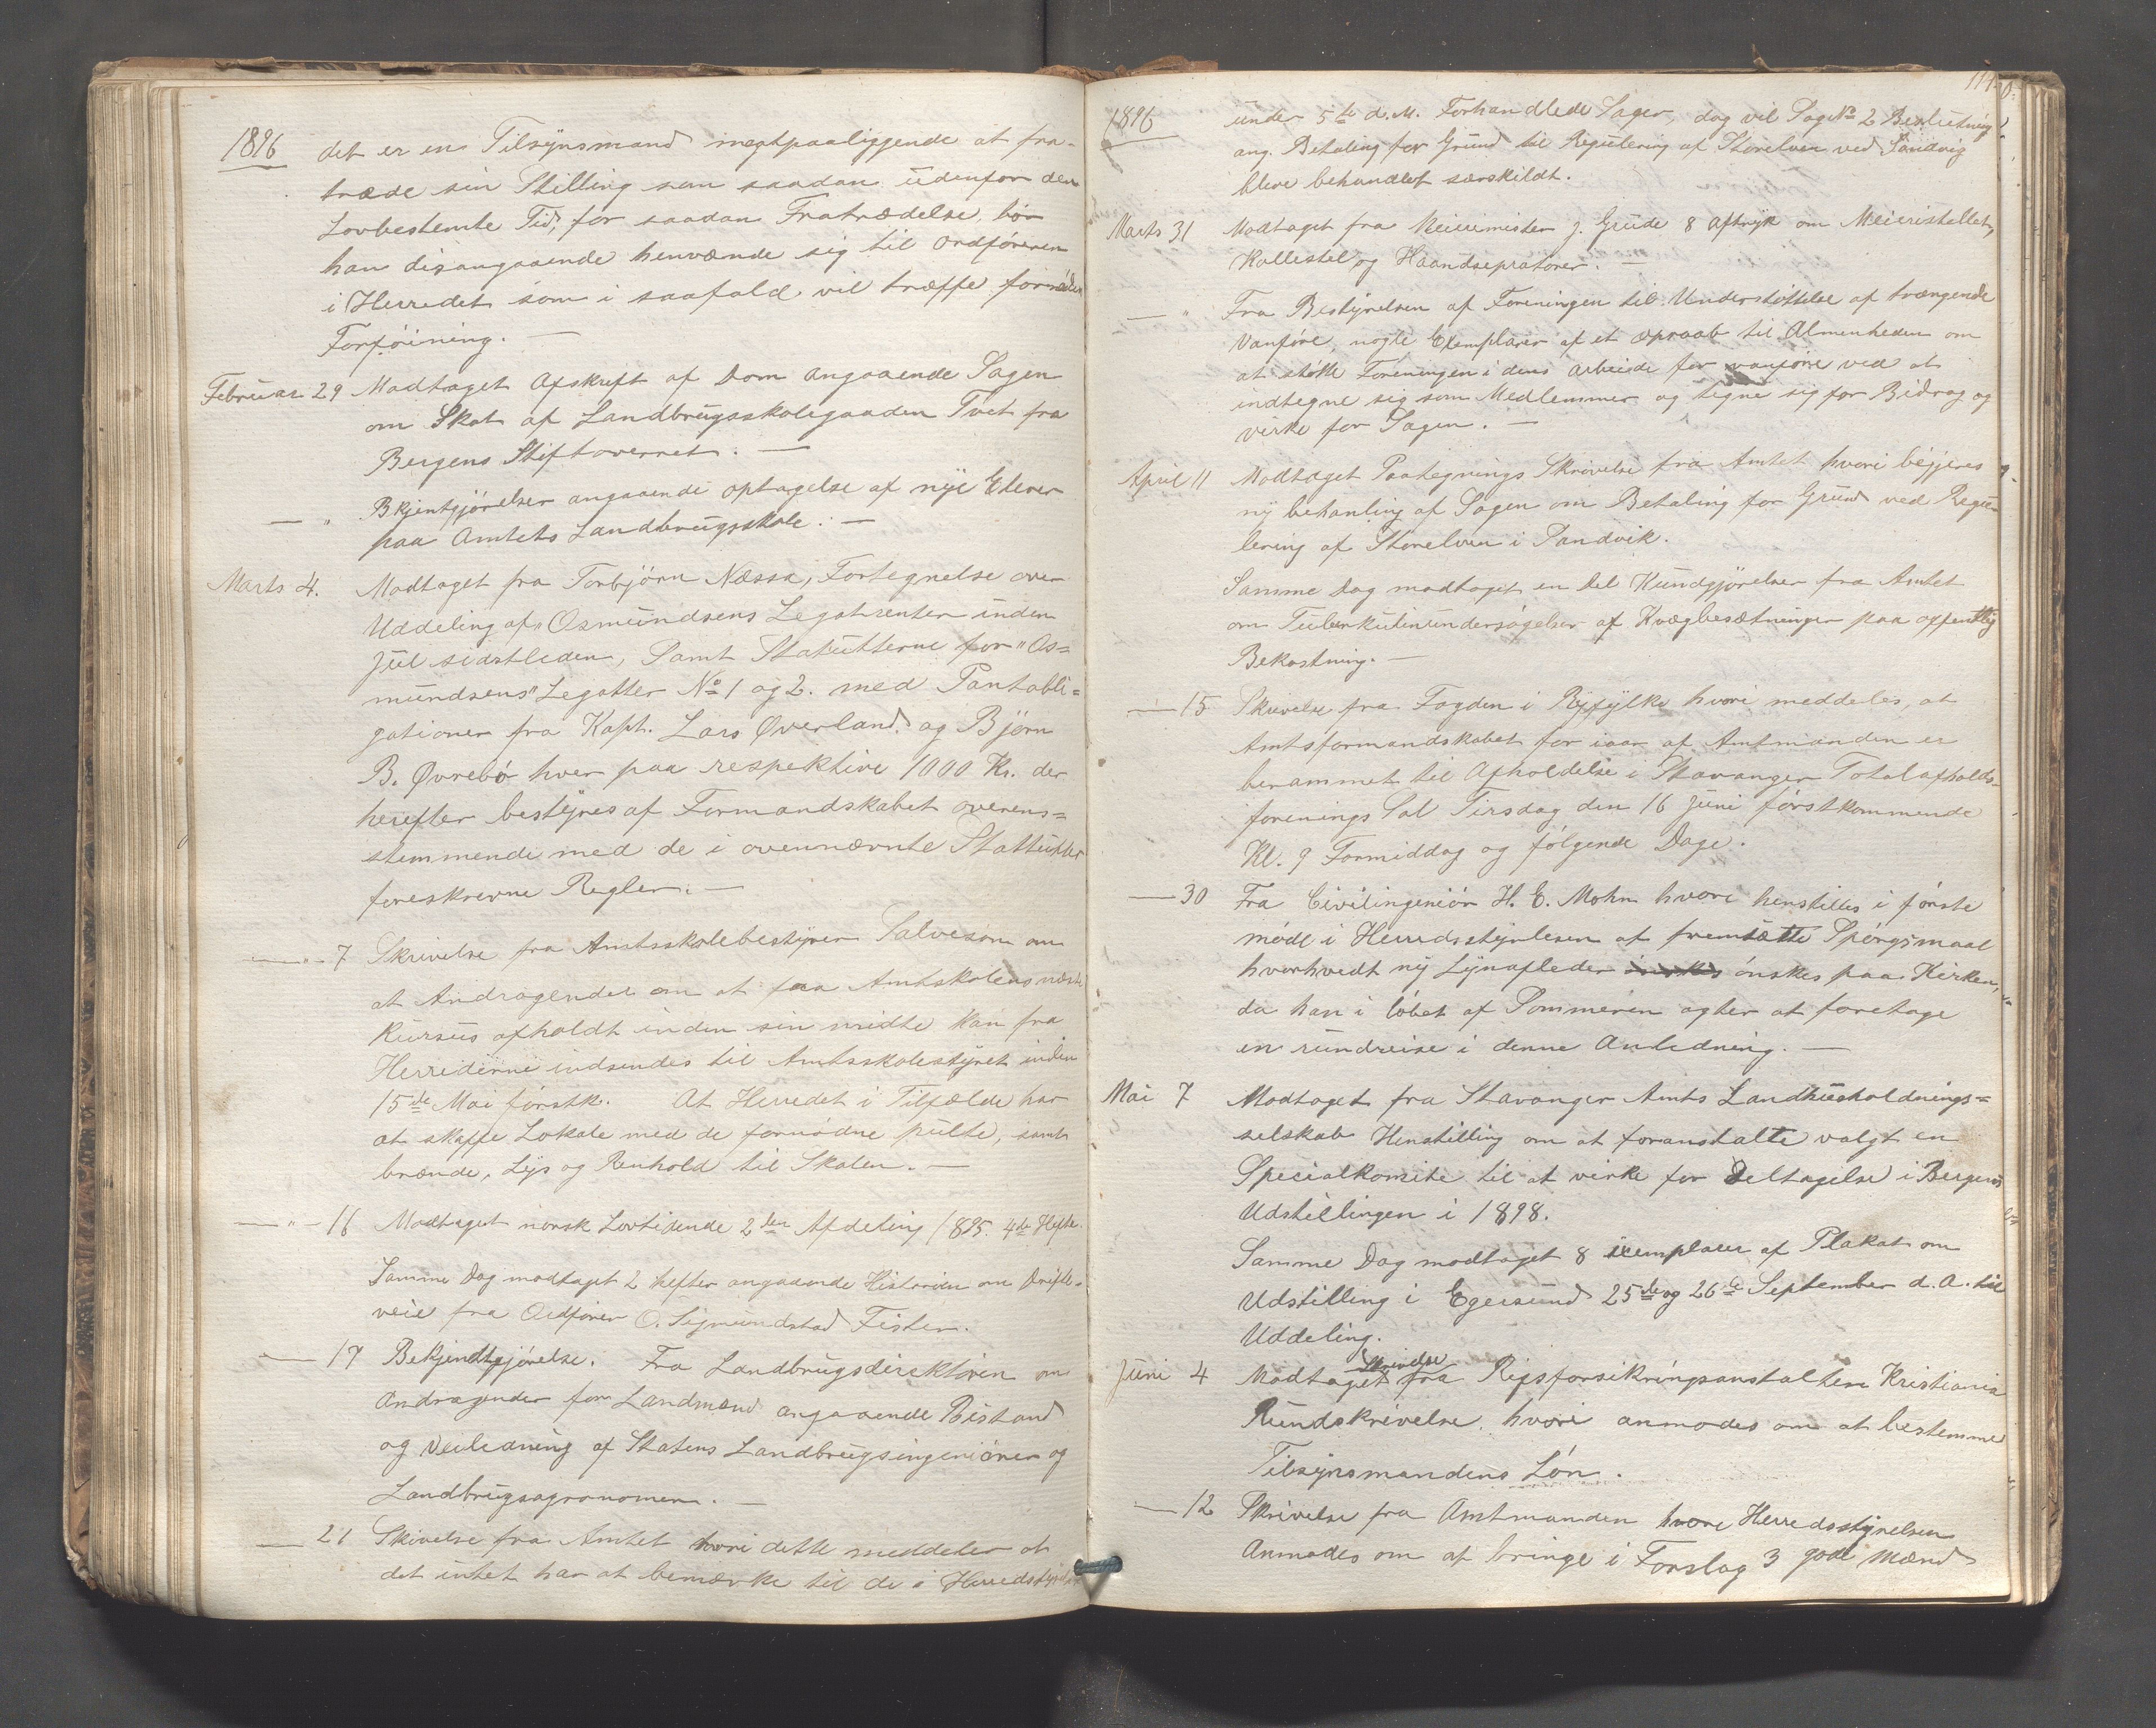 1896
det er en Tilsynsmand megtpaaliggende at fra-
træde sin Stilling som saadan udenfor den
Lovbestemte Tid, for saadan Fratrædelse, bør
han disangaaende henvænde sig til Ordføreren
i Herredet som i saafald vil træffe fornøden
Forføining. —
Februar 29 Modtaget Afskrift af Dom angaaende Sagen
om Skat af Landbrugsskolegaaden Tveit fra
Bergens Stiftoverret. —
— " Bkjentgjørelser angaaende optagelse af nye Elever
paa Amtets Landbrugsskole. —
Marts 4. Modtaget fra Torbjørn Næssa, Fortegnelse over
Uddeling af "Osmundsens Legatrenter inden
Jul sidstleden, Samt Statutterne for "Os=
mundsens" Legatter No 1 og 2. med Pantobli=
gationer fra Kapt. Lars Øverland og Bjørn
B. Øvrebø hver paa respektive 1000 Kr. der
herefter bestyres af Formandskabet overens=
stemmende med de i ovennævnte Stattutter
foreskrevne Regler. —
— " — 7 Skrivelse fra Amtsskolebestyrer Salvesom om
at Andragender om at faa Amtskolens næste
Kursus afholdt inden sin midte kan fra
Herrederne indsendes til Amtsskolestyret inden
15de Mai førstk. At Herredet i Tilfælde har
at skaffe Lokale med de fornødne pulte, samt
brænde, Lys og Renhold til Skolen. —
— " — 16 Modtaget norsk Lovtidende 2den Afdeling 1895. 4de Hefte.
Samme Dag modtaget 2 hefter angaaende Historien om Drifte-
veie fra Ordfører O. Sigmundstad Fister.
— 17 Bekjendtgjørelse. Fra Landbrugsdirektøren om
Andragender for Landmænd angaaende Bistand
og Veiledning af Statens Landbrugsingeniører og
Landbrugsagronomer. —
— 21 Skivelse fra Amtet hvori dette meddeler at
det intet har at bemærke til de i Herredstyrelsen
1896
under 5te d. M. Forhandlede Sager, dog vil Sag No 2 Beslutning
ang. Betaling for Grund til Regulering af Storelven ved Sandvig
bleve behandlet særskildt.
Marts 31 Modtaget fra Meierimister J. Grude 8 aftryk om Meieristellet,
Kallestel og Haandsepratorer. —
— " Fra Bestyrelsen af Foreningen til Understøttelse af trængende
Vanføre, nogle Exemplarer af et opraab til Almenheden om
at støtte Foreningen i dens arbeide for vanføre ved at
indtegne sig som Medlemmer og tegne sig for Bidrag og
virke for Sagen. —
April 11 Modtaget Paategnings Skrivelse fra Amtet hvori begjeres
ny behanling af Sagen om Betaling for Grund ved Regu-
lering af Storelven i Sandvik.
Samme Dag modtaget en Del Kundgjørelser fra Amtet
om Tuberkulinundersøgelser af Kvægbesætninger paa offentlig
Bekostning. —
— 15 Skrivelse fra Fogden i Ryfylke hvori meddeles, at
Amtsformandskabet for iaar af Amtmanden er
berammet til Afholdelse i Stavanger Totalafholds-
forenings Sal Tirsdag den 16 Juni førstkommende
Kl. 9 Formiddag og følgende Dage.
— 30 Fra Civilingeniør H. E. Mohn hvori henstilles i første
møde i Herredsstyrelsen at fremsætte Spørgsmaal
hvorhvedt ny Lynafleder ønskes paa Kirken,
da han i løbet af Sommeren agter at foretage
en rundreise i denne Anledning. —
Mai 7 Modtaget fra Stavanger Amts Landhusholdnings=
selskab Henstilling om at foranstalte valgt en
Specialkomite til at virke for Deltagelse i Bergens
Udstillingen i 1898.
Samme Dag modtaget 8 exemplarer af Plakat om
Udstilling i Egersund 25de og 26de September d. A. til
Uddeling.
Skrivelse
Juni 4 Modtaget fra Rigsforsikringsanstalten Kristiania
Rundskrivelse, hvori anmodes om at bestemme
Tilsynsmandens Løn.
— 12 Skrivelse fra Amtmanden hvori Herredsstyrelsen
Anmodes om at bringe i Forslag 3 gode Mænd